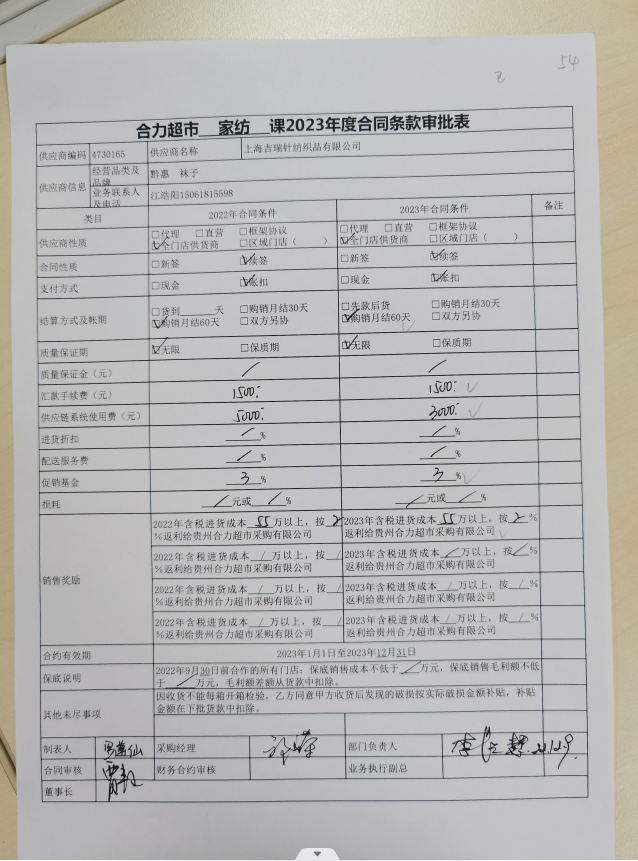 54
合力超市 家纺 课2023年度合同条款审批表
供应商编码 4730165 供应商名称 上海吉瑞针纺织品有限公司
供应商信息 经营品类及品牌 黔惠 袜子
业务联系人及电话 江浩阳15061815598
类目 2022年合同条件 2023年合同条件 备注
供应商性质 □代理 □直营 □框架协议 ☑全门店供货商 □区域门店（ ） □代理 □直营 □框架协议 ☑全门店供货商 □区域门店（ ）
合同性质 □新签 ☑续签 □新签 ☑续签
支付方式 □现金 ☑账扣 □现金 ☑账扣
结算方式及帐期 □货到____天 □购销月结30天 ☑购销月结60天 □双方另协 □先款后货 □购销月结30天 ☑购销月结60天 □双方另协
质量保证期 ☑无限 □保质期 ☑无限 □保质期
质量保证金（元） / /
汇款手续费（元） 1500: 1500:
供应链系统使用费（元） 5000: 3000:
进货折扣 / % / %
配送服务费 / % / %
促销基金 3 % 3 %
损耗 / 元或 / % / 元或 / %
销售奖励 2022年含税进货成本 55 万以上，按 2 %返利给贵州合力超市采购有限公司 2023年含税进货成本 55 万以上，按 2 %返利给贵州合力超市采购有限公司
2022年含税进货成本 / 万以上，按 / %返利给贵州合力超市采购有限公司 2023年含税进货成本 / 万以上，按 / %返利给贵州合力超市采购有限公司
2022年含税进货成本 / 万以上，按 / %返利给贵州合力超市采购有限公司 2023年含税进货成本 / 万以上，按 / %返利给贵州合力超市采购有限公司
2022年含税进货成本 / 万以上，按 / %返利给贵州合力超市采购有限公司 2023年含税进货成本 / 万以上，按 / %返利给贵州合力超市采购有限公司
合约有效期 2023年1月1日至2023年12月31日
保底说明 2022年9月30日前合作的所有门店：保底销售成本不低于 / 万元，保底销售毛利额不低
于 / 万元，毛利额差额从货款中扣除。
其他未尽事项 因收货不能每箱开箱检验，乙方同意甲方收货后发现的破损按实际破损金额补贴，补贴
金额在下批货款中扣除。
制表人 采购经理 部门负责人
合同审核 财务合约审核 业务执行副总
董事长